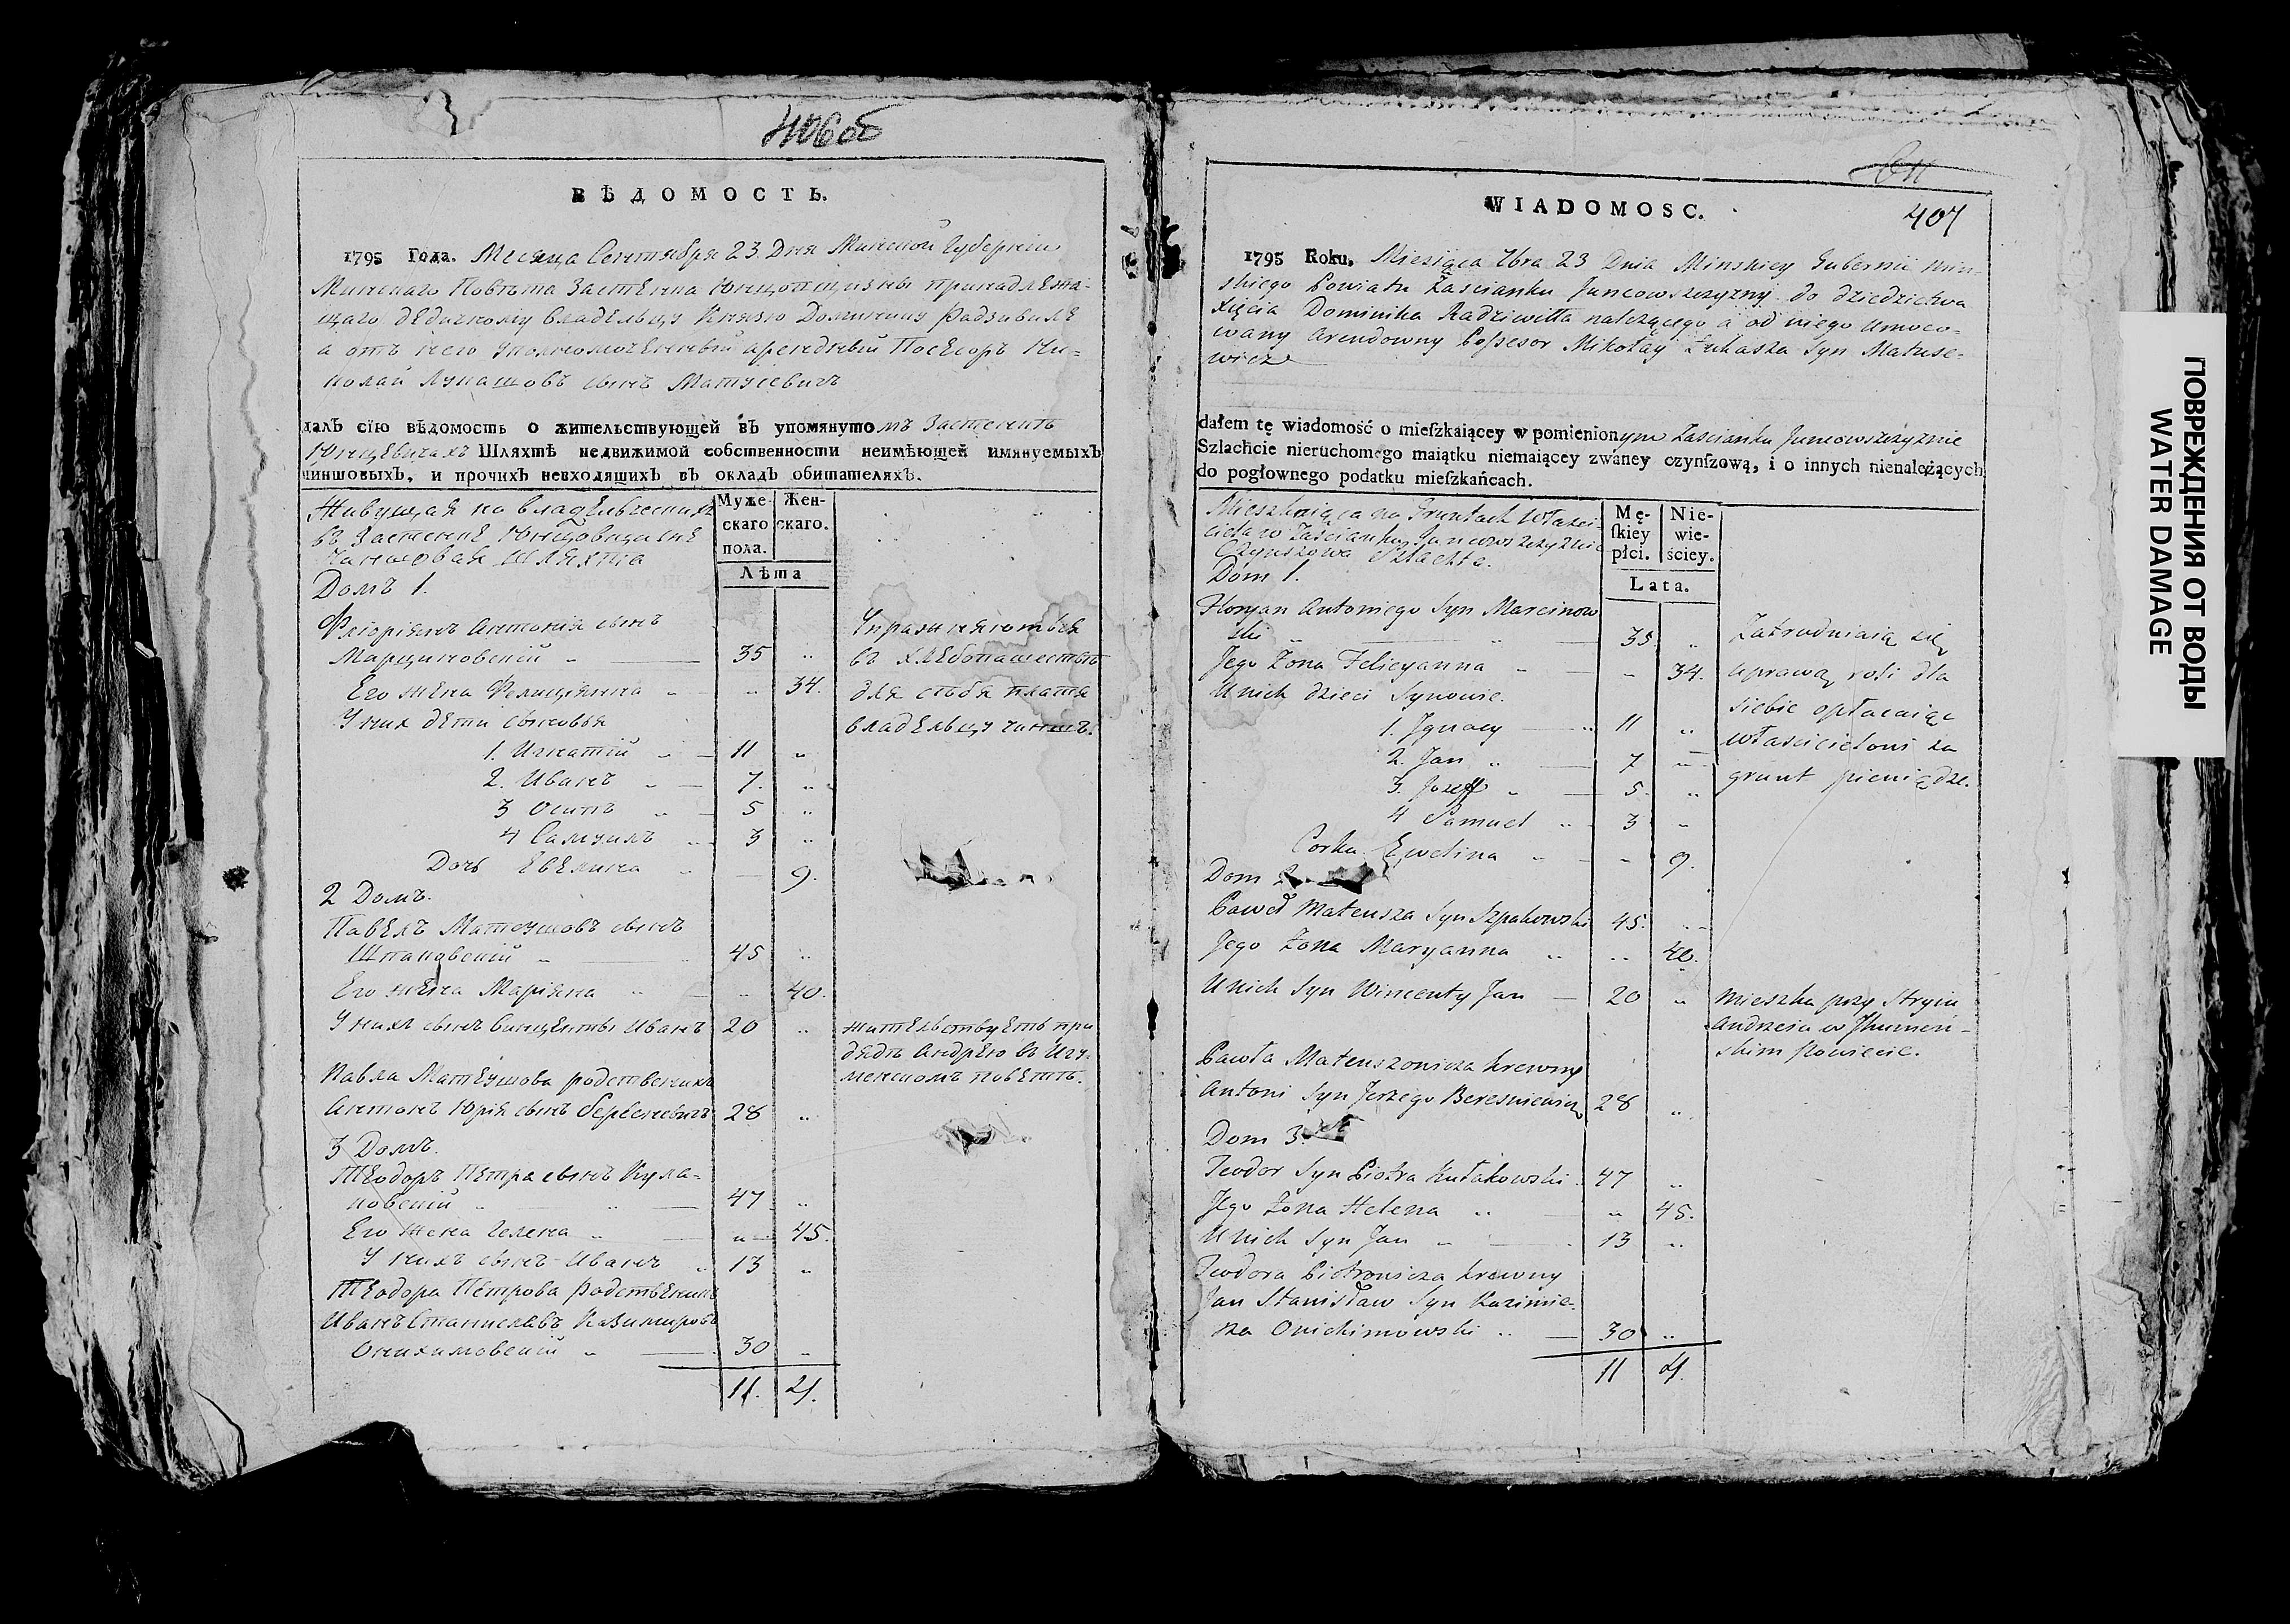 406об
ВѢДОМОСТЬ.
1795 Года. Месяца Сентября 23. Дня Минской Губерніи
Минскаго Повѣта Застенка Юнцопщизны принадлежа-
щаго дедичному владельцу Князю Доминику Радзивиле
а отъ него уполномоченный арендный Посесоръ Ни-
колай Лукашовъ сынъ Матусевичъ
далъ сїю вѣдомость о жительствующей въ упомянутомъ Застенкѣ
Юнцевичахъ Шляхтѣ недвижимой собственности неимѣющей имянуемыхъ
чиншовыхъ, и прочихъ невходящихъ въ окладъ обитателяхъ.
Живущая на владельческихъ
въ Застенке Юнцовщизне
Чиншовая шляхта
Муже-
скаго
пола.
Жен-
скаго.
Лѣта
Домъ 1.
Флоріянъ Антонія сынъ
Марциновскій 35
Его жена Фелиціянна 34.
У них дети сыновья
1. Игнатій 11
2. Иванъ 7.
3 Осипъ 5
4 Самуилъ 3
Дочь Евелина 9.
Упражняются
въ хлебопашествѣ
для себя платя
владельцу чиншъ.
2 Домъ.
Павелъ Матеушовъ сынъ
Шпаковскій 45
Его жена Маріяна 40.
У нихъ сынъ Винценты Иванъ 20
жительствуетъ при
дядѣ Андрею въ Игу-
менскомъ повѣтѣ.
Павла Матеушова родственикъ
Антонъ Юрія сынъ Бересневичъ 28
3 Домъ.
Теодоръ Петра сынъ Кула-
ковскій 47
Его жена Гелена 45.
У нихъ сынъ Иванъ 13
Теодора Петрова родственикъ
Иванъ Станиславъ Казимировъ
Онихимовскій 30
11. 4.
407
WIADOMOSC.
1795 Roku. Miesiąca 7bra 23 Dnia Minskiey Gubernii Min-
skiego Powiatu Zascianku Juncowszczyzny do dziedzictwa
Xięcia Dominika Radziwiłła należącego a od niego umoco-
wany arendowny Possesor Mikołay Łukasza Syn Matuse-
wicz
dałem tę wiadomość o mieſzkaiącey w pomienionym Zascianku Juncowszczyznie
Szlachcie nieruchomego maiątku niemaiącey zwaney czynſzową, i o innych nienależących
do pogłownego podatku mieſzkańcach.
Mieszkaiąca na Gruntach Własci-
ciela w Zaścianku Juncowszczyznie
Czynszowa Szlachta.
Mę-
ſkiey
płci.
Nie-
wie-
ściey.
Lata.
Dom 1.
Floryan Antoniego Syn Marcinow
ski 35.
Jego Zona Felicyanna 34.
U nich dzieci Synowie.
1. Jgnacy 11
2. Jan 7
3. Jozeff 5.
4 Samuel 3
Corka Ewelina 9.
Zatrudniaią się
uprawą roli dla
siebie opłacaiąc
właścicielowi za
grunt pieniądze.
Dom 2
Paweł Mateusza Syn Szpakowski 45.
Jego Zona Maryanna 40.
U nich Syn Wincenty Jan 20
mieszka przy Stryiu
Andrzeia w Jhumeń-
skim Powiecie.
Pawła Mateuszowicza krewny
Antoni Syn Jerzego Beresniewicz 28
Dom 3.
Teodor Syn Piotra Kułakowski 47
Jego Zona Helena 45.
U nich Syn Jan 13
Teodora Piotrowicza krewny
Jan Stanisław Syn Kazimie-
rza Onichimowski 30
11 4.
ПОВРЕЖДЕНИЯ ОТ ВОДЫ
WATER DAMAGE